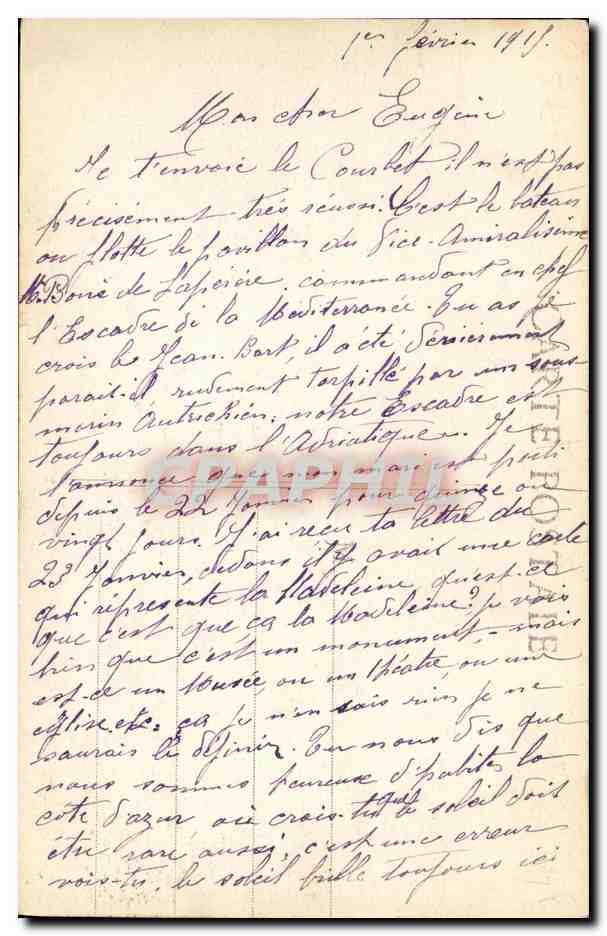 1er février 1915.
Mon cher Eugène
Je t'envoie le Courbet il n'est pas
précisément très réussi. C'est le bateau
ou flotte le pavillon du Vice-Amiralissime
Mr Boué de Lapeirère, commandant en chef
l'Escadre de la Méditerranée. Tu as je
crois le Jean-Bart, il a été dernièrement
parait-il rudement torpillé par un sous-
marin Autrichien; notre Escadre est
toujours dans l'Adriatique. Je
t'annonce que mon mari est parti
depuis le 22 Janvier pour quinze ou
vingt jours. J'ai reçu ta lettre du
23 Janvier, dedans il y avait une carte
qui représente la Madeleine, qu'est-ce
que c'est que ça la Madeleine? je vois
bien que c'est un monument, mais
est-ce un Musée, ou un théâtre, ou une
église, etc. ça je n'en sais rien je ne
saurais le définir. Tu nous dis que
nous sommes heureux d'habiter la
cote d'azur où crois-tu que le soleil doit
être rare aussi, c'est une erreur
vois-tu, le soleil brille toujours ici
CARTE POSTALE
CPAPHIL